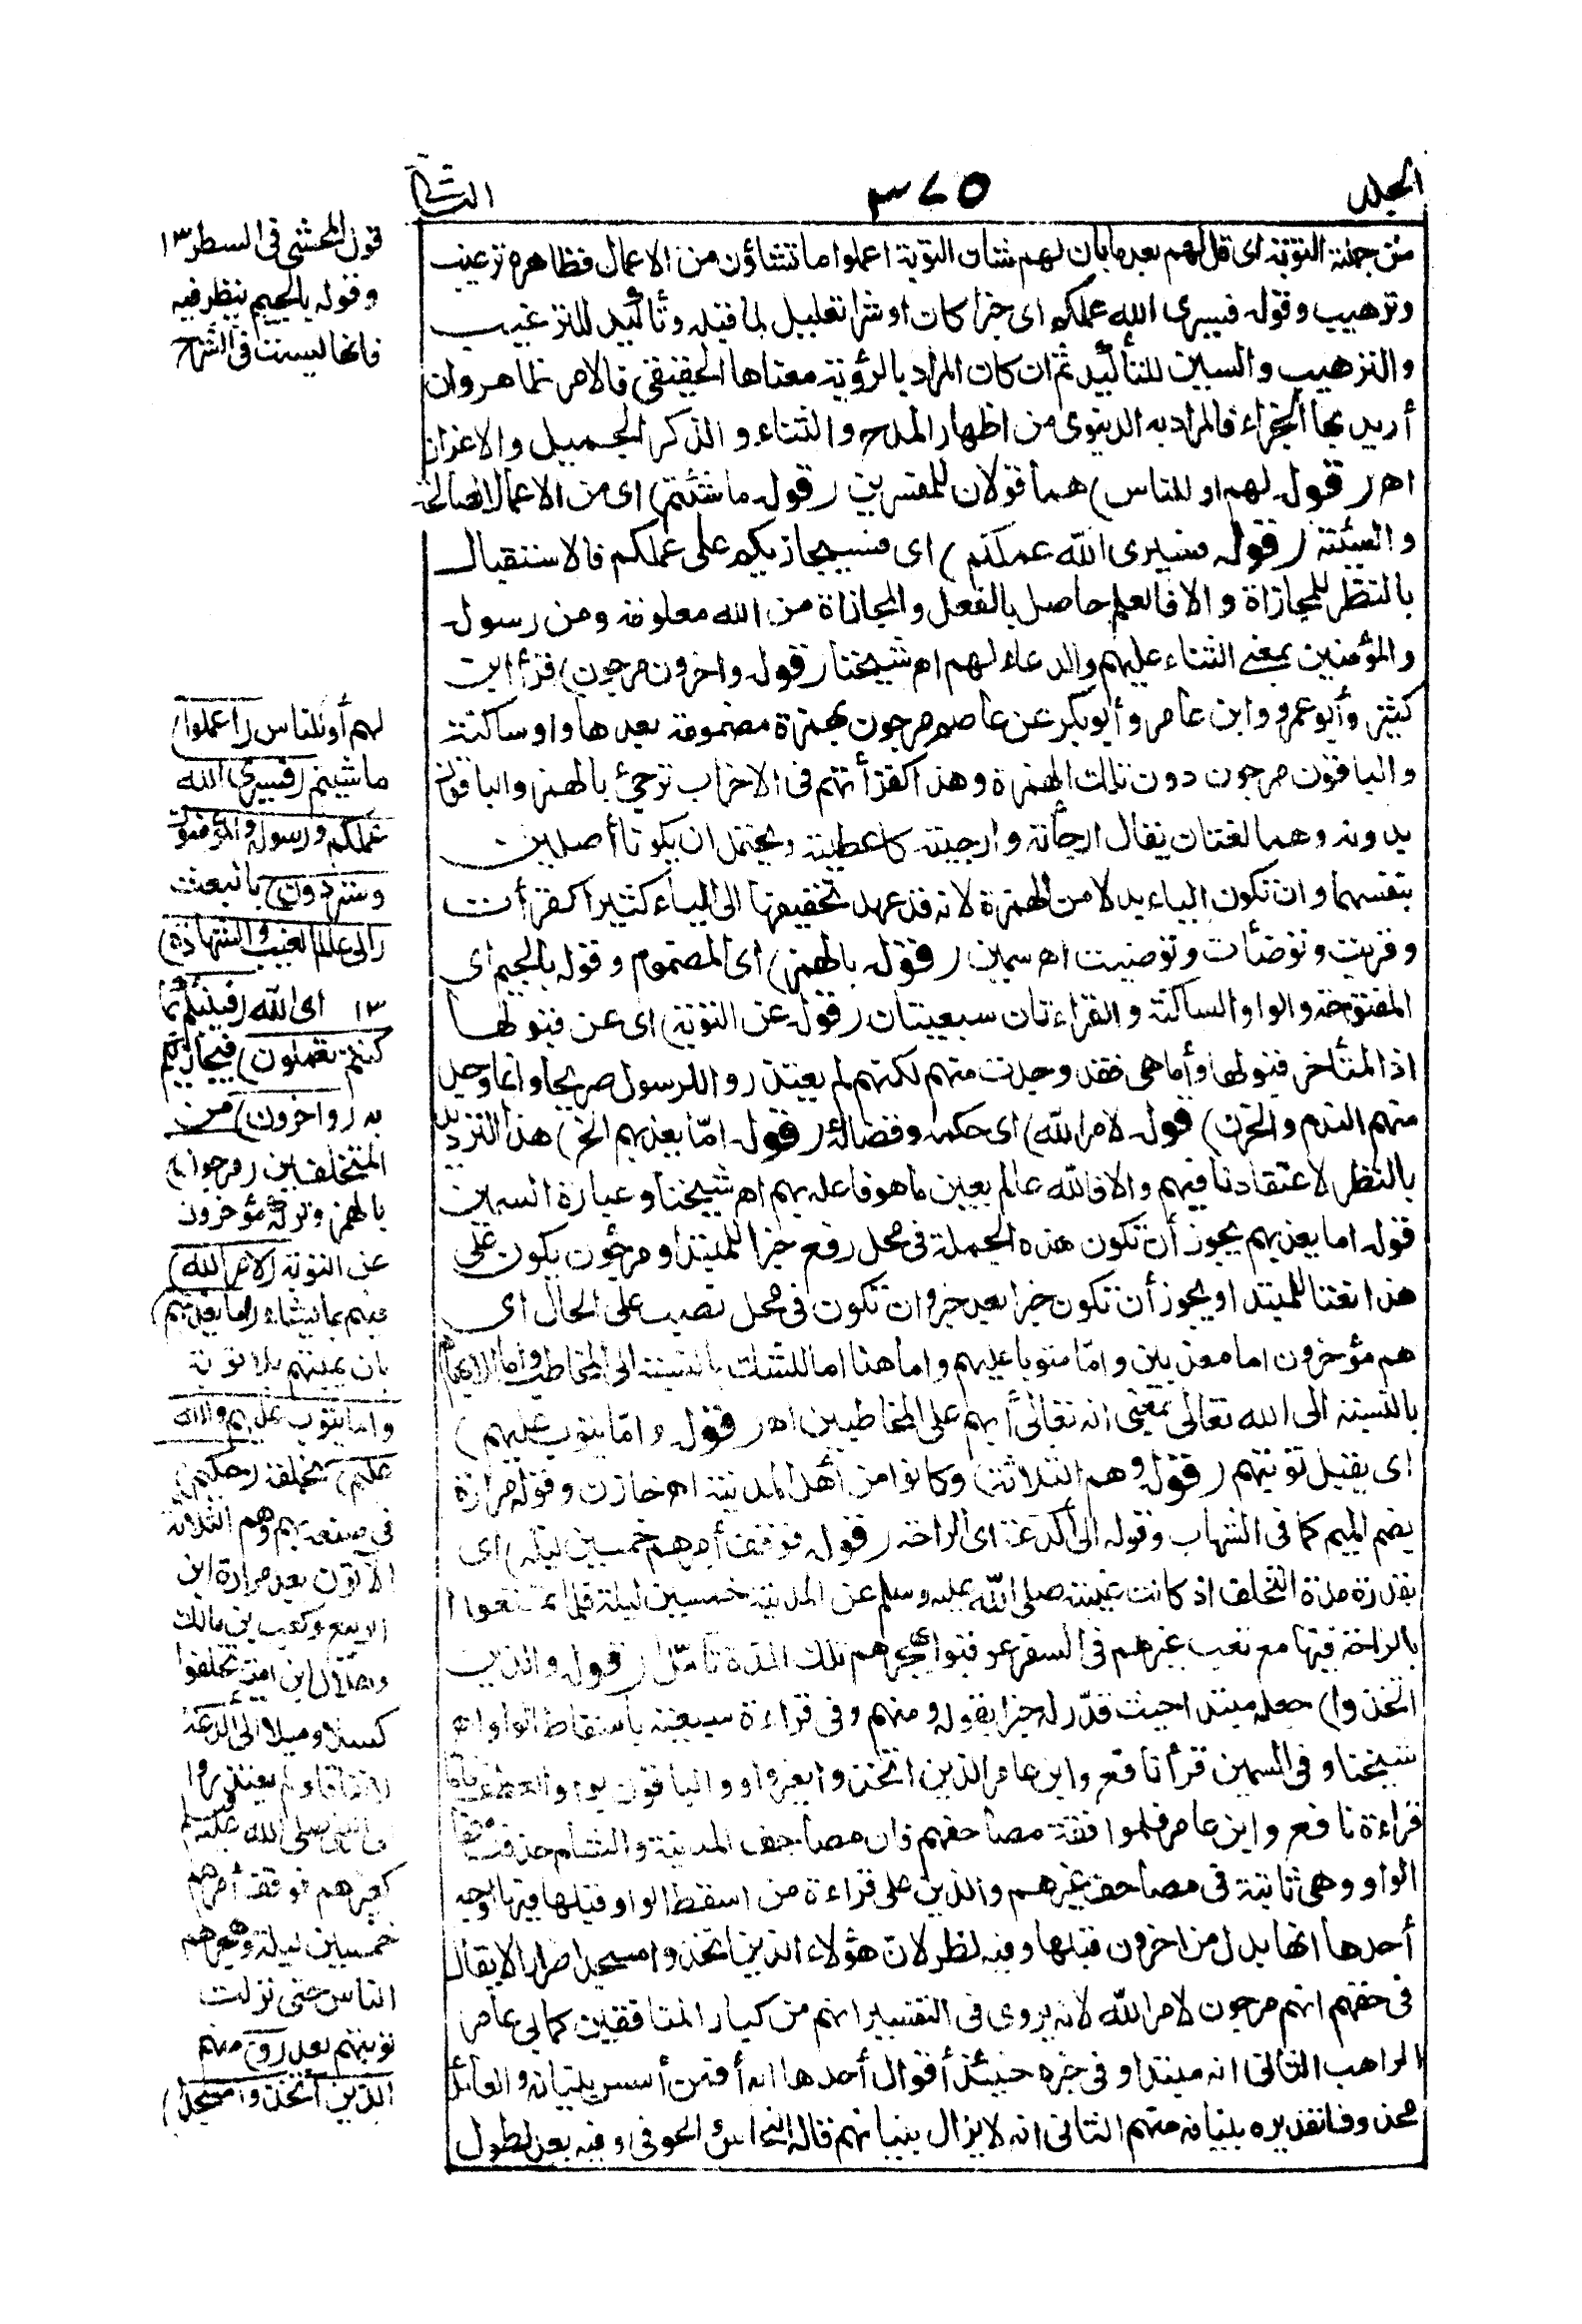 الجلد
٣٧٥
الثانى
من جملة التوبة اى قل لهم بعد ما بان لهم شأن التوبة اعملوا ما تشاؤن من الاعمال فظاهره ترغيب
وترهيب وقوله فسيرى الله عملكم اى خيرا كان او شرا تعليل لما قبله وتأكيد للترغيب
والترهيب والسين للتأكيد ثم ان كان المراد بالرؤية معناها الحقيقى فالامر ظاهر وان
أريد بها الجزاء فالمراد به الدنيوى من اظهار المدح والثناء والذكر الجميل والاعزاز
اه (قوله لهم او للناس) هما قولان للمفسرين (قوله ما شئتم) اى من الاعمال الصالحة
والسيئة (قوله فسيرى الله عملكم) اى فسيجازيكم على عملكم فالاستقبال
بالنظر للمجازاة والا فالعلم حاصل بالفعل والمجازاة من الله معلومة ومن رسوله
والمؤمنين بمعنى الثناء عليهم والدعاء لهم اه شيخنا (قوله واخرون مرجون) قرأ ابن
كثير وأبو عمرو وابن عامر وأبو بكر عن عاصم مرجون بهمزة مضمومة بعدها واو ساكنة
والباقون مرجون دون تلك الهمزة وهذا كقرأتهم فى الاحزاب ترجئ بالهمز والباقون
بدونه وهما لغتان يقال ارجأته وارجيته كاعطيته ويحتمل ان يكونا أصلين
بنفسهما وان تكون الياء بدلا من الهمزة لانه قد عهد تخفيفها الى الياء كثيرا كقرأت
وقريت وتوضأت وتوضيت اه سمين (قوله بالهمز) اى المضموم وقوله بالجيم اى
المفتوحة والواو الساكنة والقراءتان سبعيتان (قوله عن التوبة) اى عن قبولها
اذ المتأخر قبولها وأما هى فقد وجدت منهم لكنهم لم يعتذروا للرسول صريحا وانما وجد
منهم الندم والحزن (قوله لامر الله) اى حكمه وقضائه (قوله امّا يعذبهم الخ) هذا الترديد
بالنظر لاعتقادنا فيهم والا فالله عالم بعين ما هو فاعله بهم اه شيخنا وعبارة السمين
قوله اما يعذبهم يجوز أن تكون هذه الجملة فى محل رفع خبرا للمبتدا ومرجون يكون على
هذا نعتا للمبتدا ويجوز أن تكون خبرا بعد خبر وان تكون فى محل نصب على الحال اى
هم مؤخرون اما معذبين وامّا متوبا عليهم واما هنا اما للشك بالنسبة الى المخاطب واما للابهام
بالنسبة الى الله تعالى بمعنى انه تعالى أبهم على المخاطبين اه (قوله وامّا يتوب عليهم)
اى يقبل توبتهم (قوله وهم الثلاثة) وكانوا من أهل المدينة اه خازن وقوله مرارة
بضم الميم كما فى الشهاب وقوله الى الدعة اى الراحة (قوله فوقف أمرهم خمسين ليلة) اى
بقدر مدة التخلف اذ كانت غيبته صلى الله عليه وسلم عن المدينة خمسين ليلة فلما تمتعوا
بالراحة فيها مع تعب غيرهم فى السفر عوقبوا بهجرهم تلك المدة تأمّل (قوله والذين
اتخذوا) جعله مبتدا حيث قدّر له خبرا بقوله ومنهم وفى قراءة سبعية باسقاط الواو اه
شيخنا وفى السمين قرأ نافع وابن عامر الذين اتخذوا بغير واو والباقون بواو العطف فاما
قراءة نافع وابن عامر فلموافقة مصاحفهم فان مصاحف المدينة والشام حذفت منها
الواو وهى ثابتة فى مصاحف غيرهم والذين على قراءة من اسقط الواو قبلها فيها اوجه
أحدها انها بدل من اخرون قبلها وفيه نظر لان هؤلاء الذين اتخذوا مسجدا ضرارا لا يقال
فى حقهم انهم مرجون لامر الله لانه يروى فى التفسير انهم من كبار المنافقين كابى عامر
الراهب الثانى انه مبتدا وفى خبره حينئذ أقوال أحدها انه أفمن أسس بنيانه والعائد
محذوف تقديره بنيانه منهم الثانى انه لا يزال بنيانهم قاله النحاس والحوفى وفيه بعد لطول
قول المحشى فى السطر ١٣
وقوله بالجيم ينظر فيه
فانها ليست فى الشرح
لهم أو للناس (اعملوا)
ما شئتم (فسيرى الله
عملكم ورسوله والمؤمنون
وستردون) بالبعث
(الى عالم الغيب والشهادة)
١٣ اى الله (فينبئكم بما
كنتم تعملون) فيجازيكم
به (واخرون) من
المتخلفين (مرجون)
بالهمز وتركه مؤخرون
عن التوبة (لامر الله)
فيهم بما يشاء (اما يعذبهم)
بان يميتهم بلا توبة
واما يتوب عليهم والله
عليم) بخلقه (حكيم)
فى صنعه بهم وهم الثلاثة
الآتون بعد مرارة ابن
الربيع وكعب بن مالك
وهلال ابن امية تخلفوا
كسلا وميلا الى الدعة
لا نفاقا ولم يعتذروا
الى النبى صلى الله عليه وسلم
كغيرهم فوقف أمرهم
خمسين ليلة وهجرهم
الناس حتى نزلت
توبتهم بعد (و) منهم
الذين اتخذوا مسجدا)